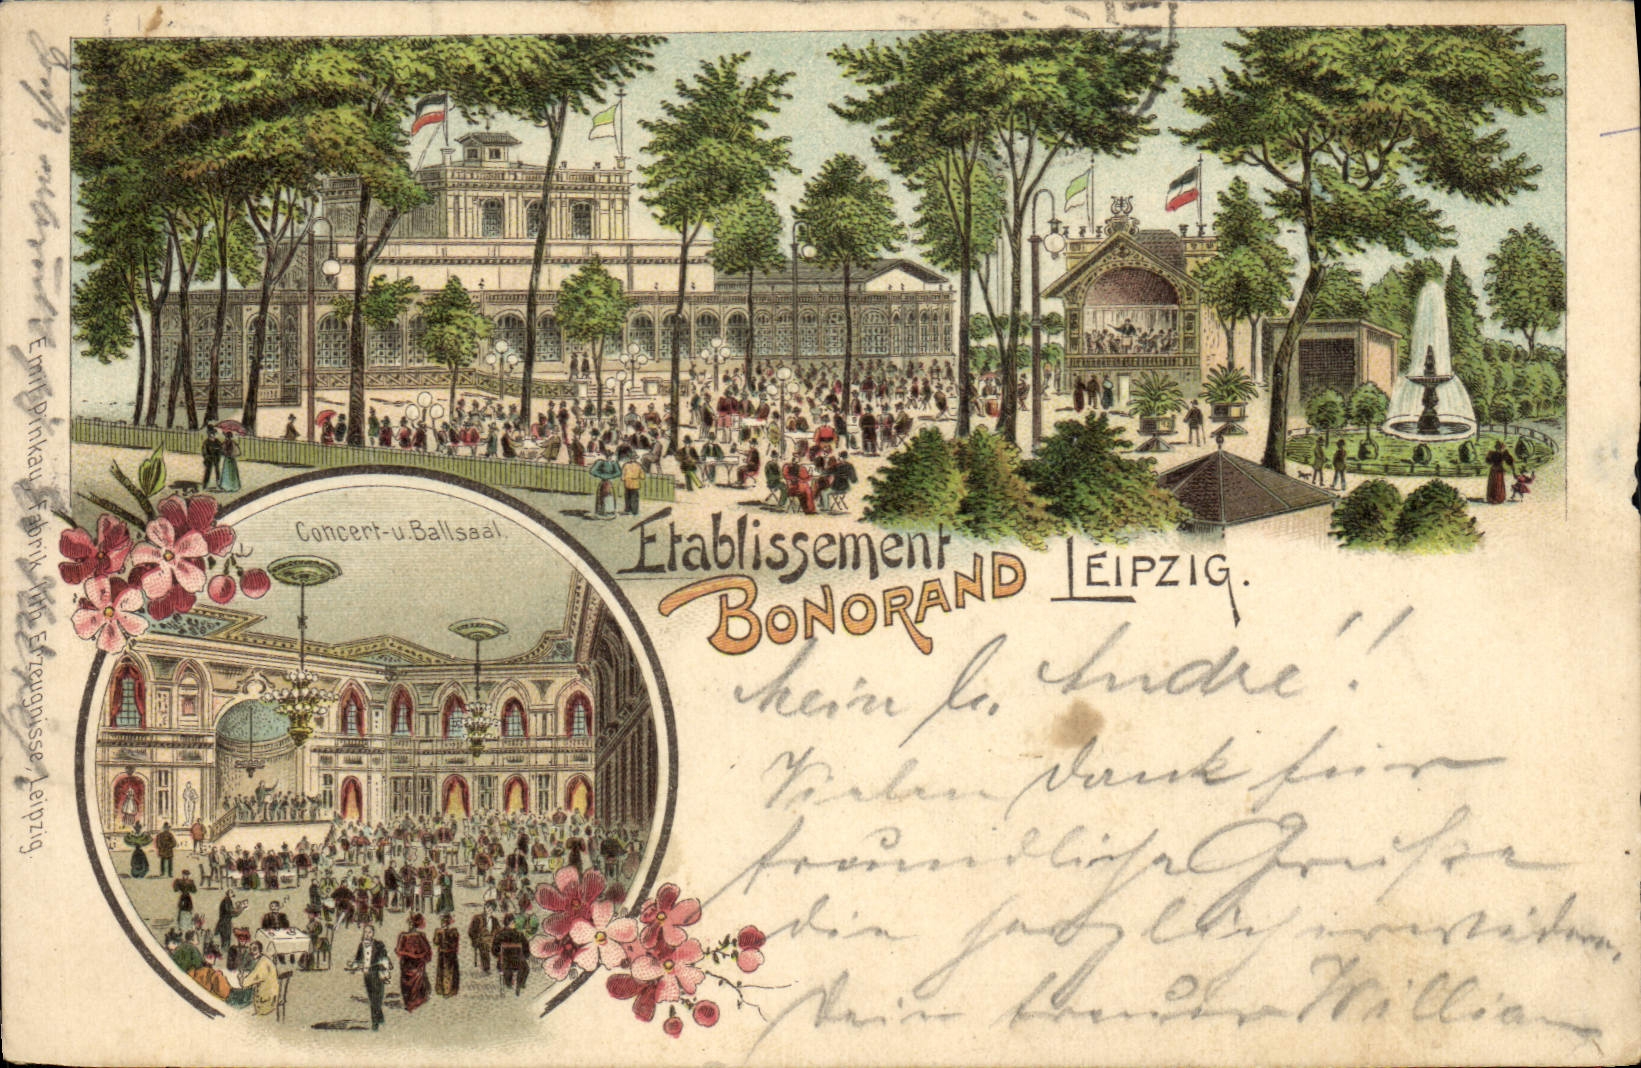 Concert-u. Ballsaal.
Etablissement
BONORAND LEIPZIG.
Mein l. Andre!
Vielen Dank für
freundliche Grüße
die herzlich erwidere,
Dein treuer William
Emil Pinkau, Fabrik lith. Erzeugnisse, Leipzig.